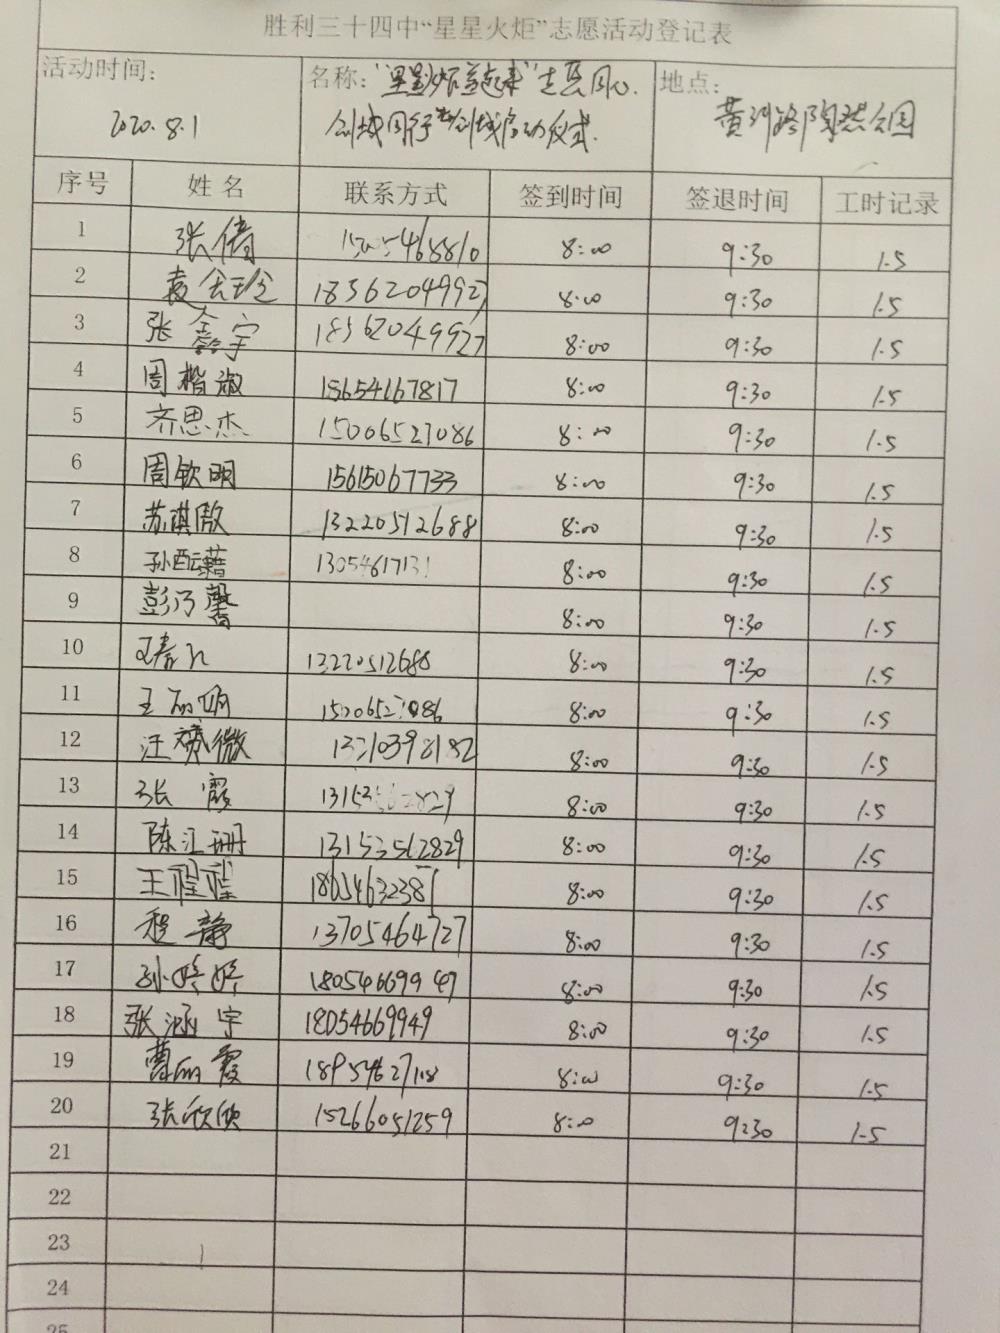 胜利三十四中“星星火炬”志愿活动登记表
活动时间： 名称： 志愿同心. 地点：
2020.8.1 创城同行 创城启动仪式. 黄河路 公园
序号 姓名 联系方式 签到时间 签退时间 工时记录
1 张倩 8:00 9:30 1.5
2 袁会珍 18562049927 8:00 9:30 1.5
3 张鑫宇 18562049927 8:00 9:30 1.5
4 周楷淑 15654167817 8:00 9:30 1.5
5 齐思杰 15006527086 8:00 9:30 1.5
6 周钦明 15615067733 8:00 9:30 1.5
7 苏琪傲 13220512688 8:00 9:30 1.5
8 孙酝藉 13054617131 8:00 9:30 1.5
9 彭乃馨 8:00 9:30 1.5
10 13220512688 8:00 9:30 1.5
11 王 8:00 9:30 1.5
12 汪 微 13210398182 8:00 9:30 1.5
13 张霞 8:00 9:30 1.5
14 陈汇珊 13153562829 8:00 9:30 1.5
15 王 18054632381 8:00 9:30 1.5
16 程静 13705464727 8:00 9:30 1.5
17 孙婷婷 18054669949 8:00 9:30 1.5
18 张涵宇 18054669949 8:00 9:30 1.5
19 曹丽霞 8:00 9:30 1.5
20 张欣欣 15266051259 8:00 9:30 1.5
21
22
23
24
25